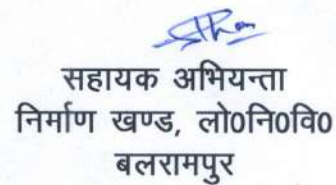 सहायक अभियन्ता
निर्माण खण्ड, लो०नि०वि०
बलरामपुर